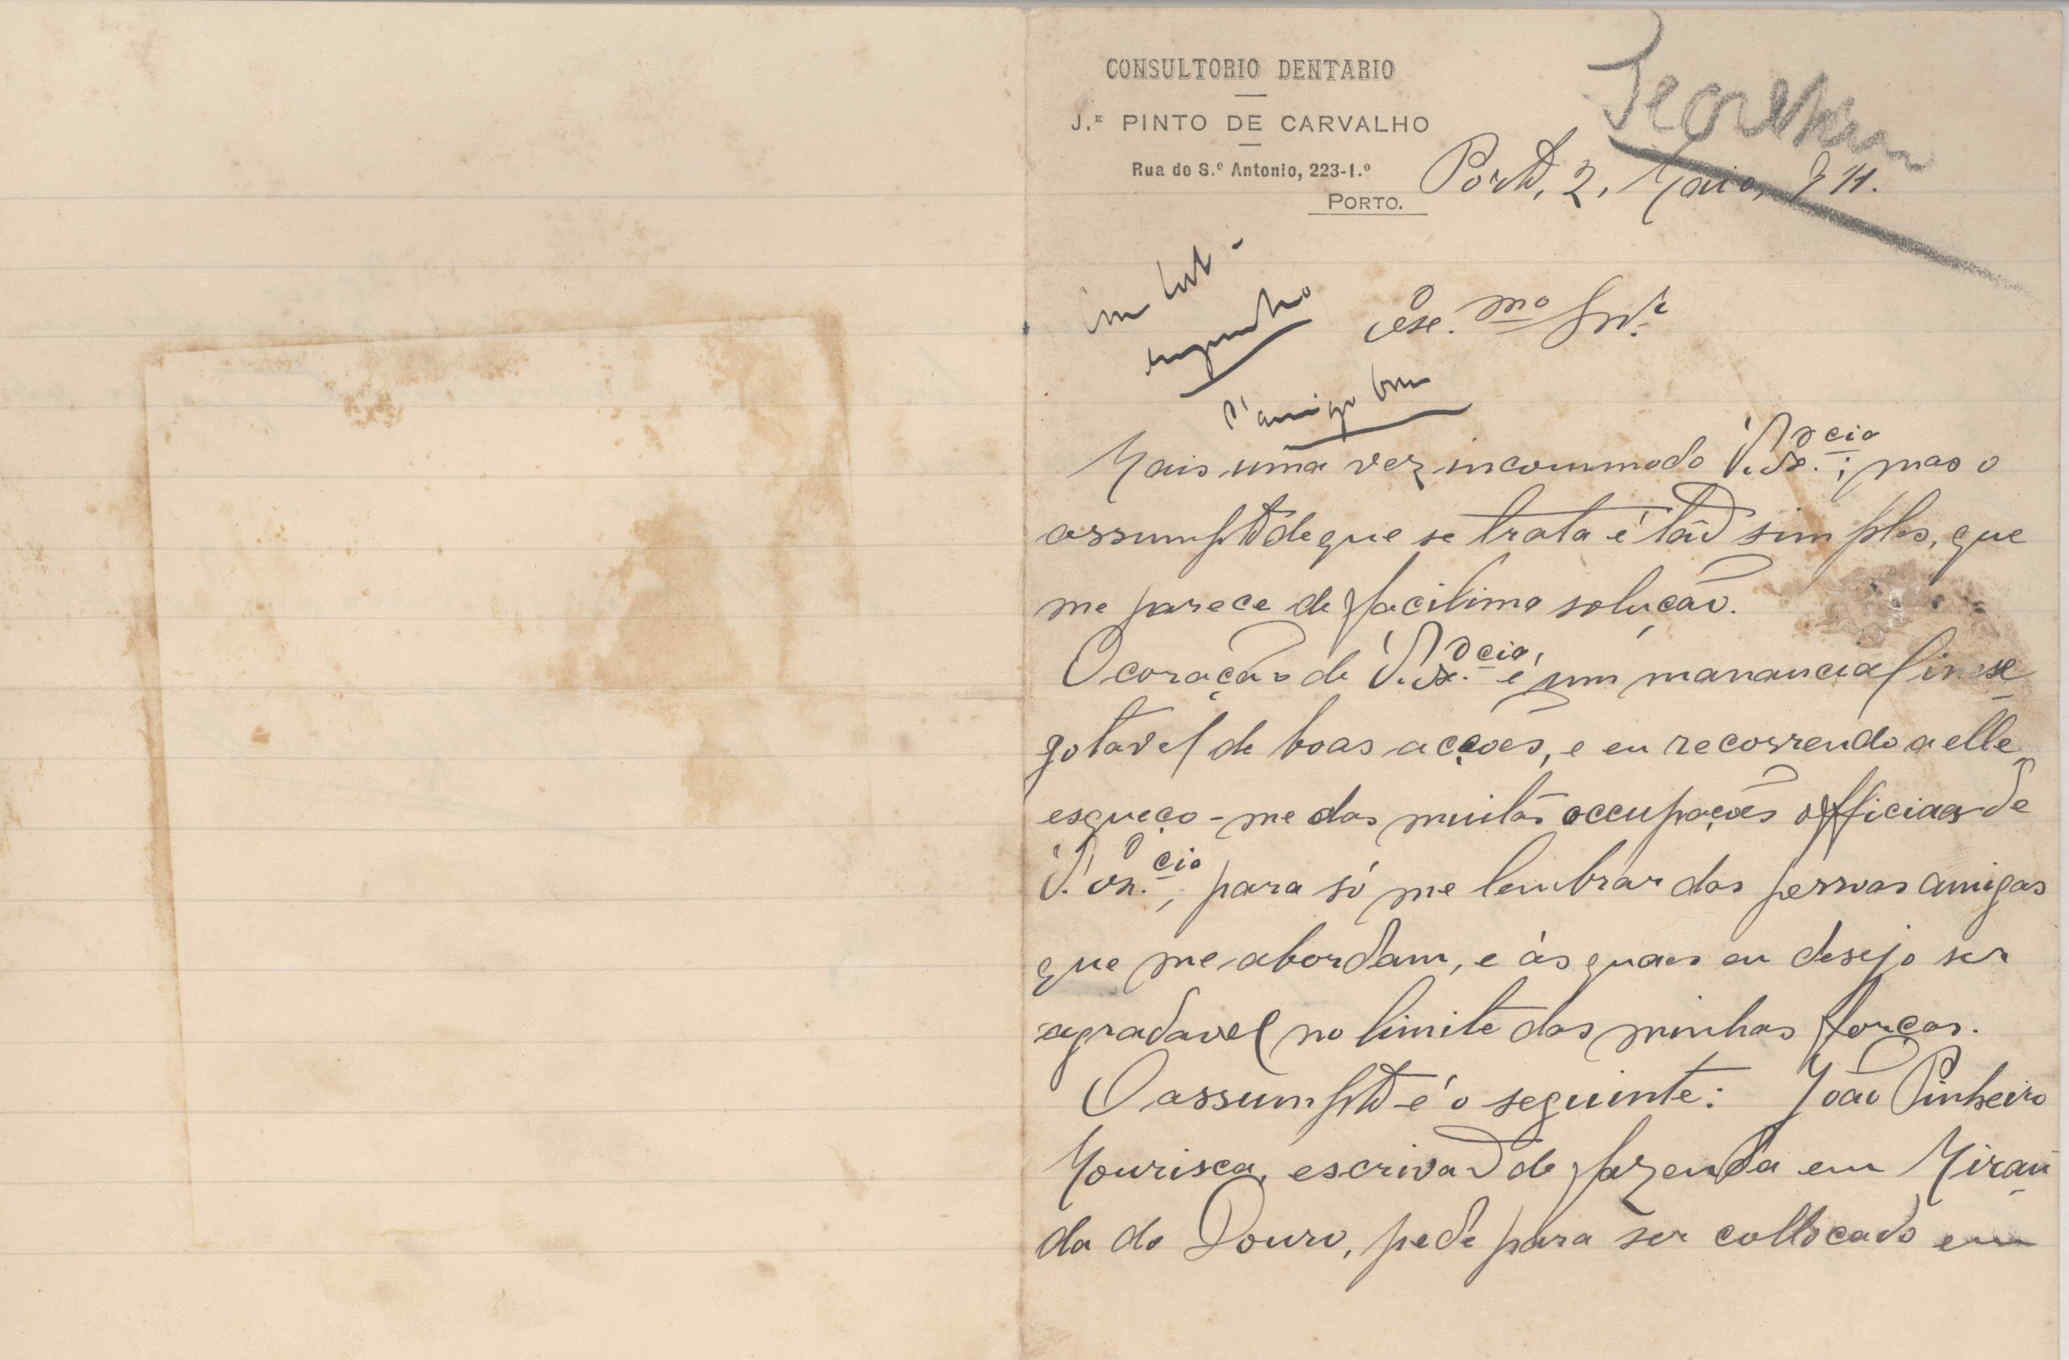 CONSULTORIO DENTARIO
J.ᴱ PINTO DE CARVALHO
Rua de S.º Antonio, 223-1.º
PORTO.
Porto, 2, Maio, 911.
Exc.mo Snr.
Mais uma vez incommodo V. Ex.cia; mas o
assumpto de que se trata é tão simples, que
me parece de facilima solução.
O coração de V. Ex.cia é um manancial ines-
gotavel de boas acções, e eu recorrendo a elle
esqueço-me das muitas occupações officiaes de
V. Ex.cia, para só me lembrar das pessoas amigas
que me abordam, e ás quaes eu desejo ser
agradavel no limite das minhas forças.
O assumpto é o seguinte: João Pinheiro
Mourisca, escrivão de fazenda em Miran-
da do Douro, pede para ser collocado em